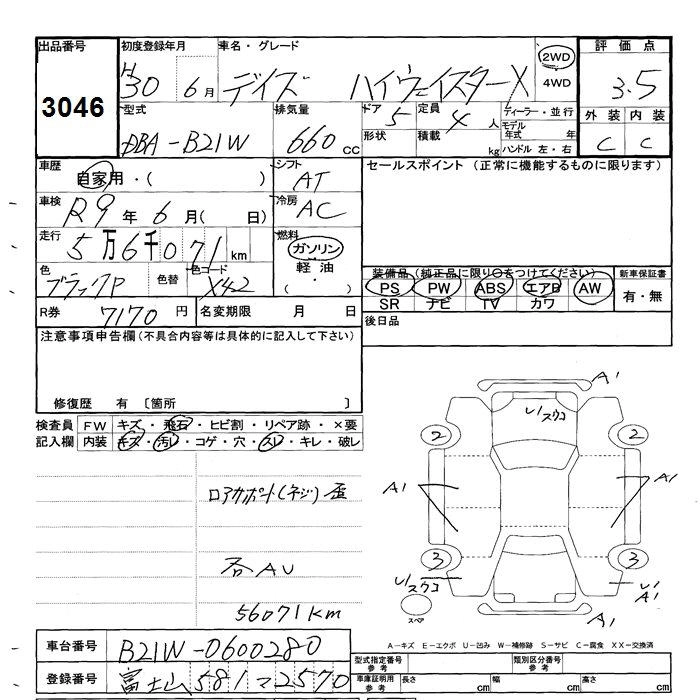 出品番号 初度登録年月 車名・グレード 2WD 4WD 評価点
3046 H30 6月 デイズ ハイウェイスターX 3.5
型式 排気量 ドア 定員 ディーラー・並行 外装 内装
DBA-B21W 660cc 5 4人 モデル年式 年 C C
形状 積載 kg ハンドル 左・右
車歴 シフト セールスポイント (正常に機能するものに限ります)
自家用・( ) AT
車検 冷房
R9年6月( 日) AC
走行 燃料
5万6千071km ガソリン
軽油
( ・ )
色 色替 色コード 装備品 (純正品に限り○をつけてください) 新車保証書
ブラックP X42 PS PW ABS エアB AW 有・無
SR ナビ TV カワ
R券 7170円 名変期限 月 日 後日品
注意事項申告欄 (不具合内容等は具体的に記入して下さい)
修復歴 有 〔箇所 〕
検査員 FW キズ・飛石・ヒビ割・リペア跡・×要
記入欄 内装 キズ・汚レ・コゲ・穴・スレ・キレ・破レ
ロアサポート(ネジ)歪
AU
56071km
A1
U/スウコ
2 2
A1 A1
3 3
U/スウコ U1
A1
スペア A1
A-キズ E-エクボ U-凹み W-補修跡 S-サビ C-腐食 XX-交換済
車台番号 B21W-0600280
登録番号 富士山 581 マ 2570
型式指定番号 参考 類別区分番号 参考
車庫証明用 参考 長さ cm 幅 cm 高さ cm